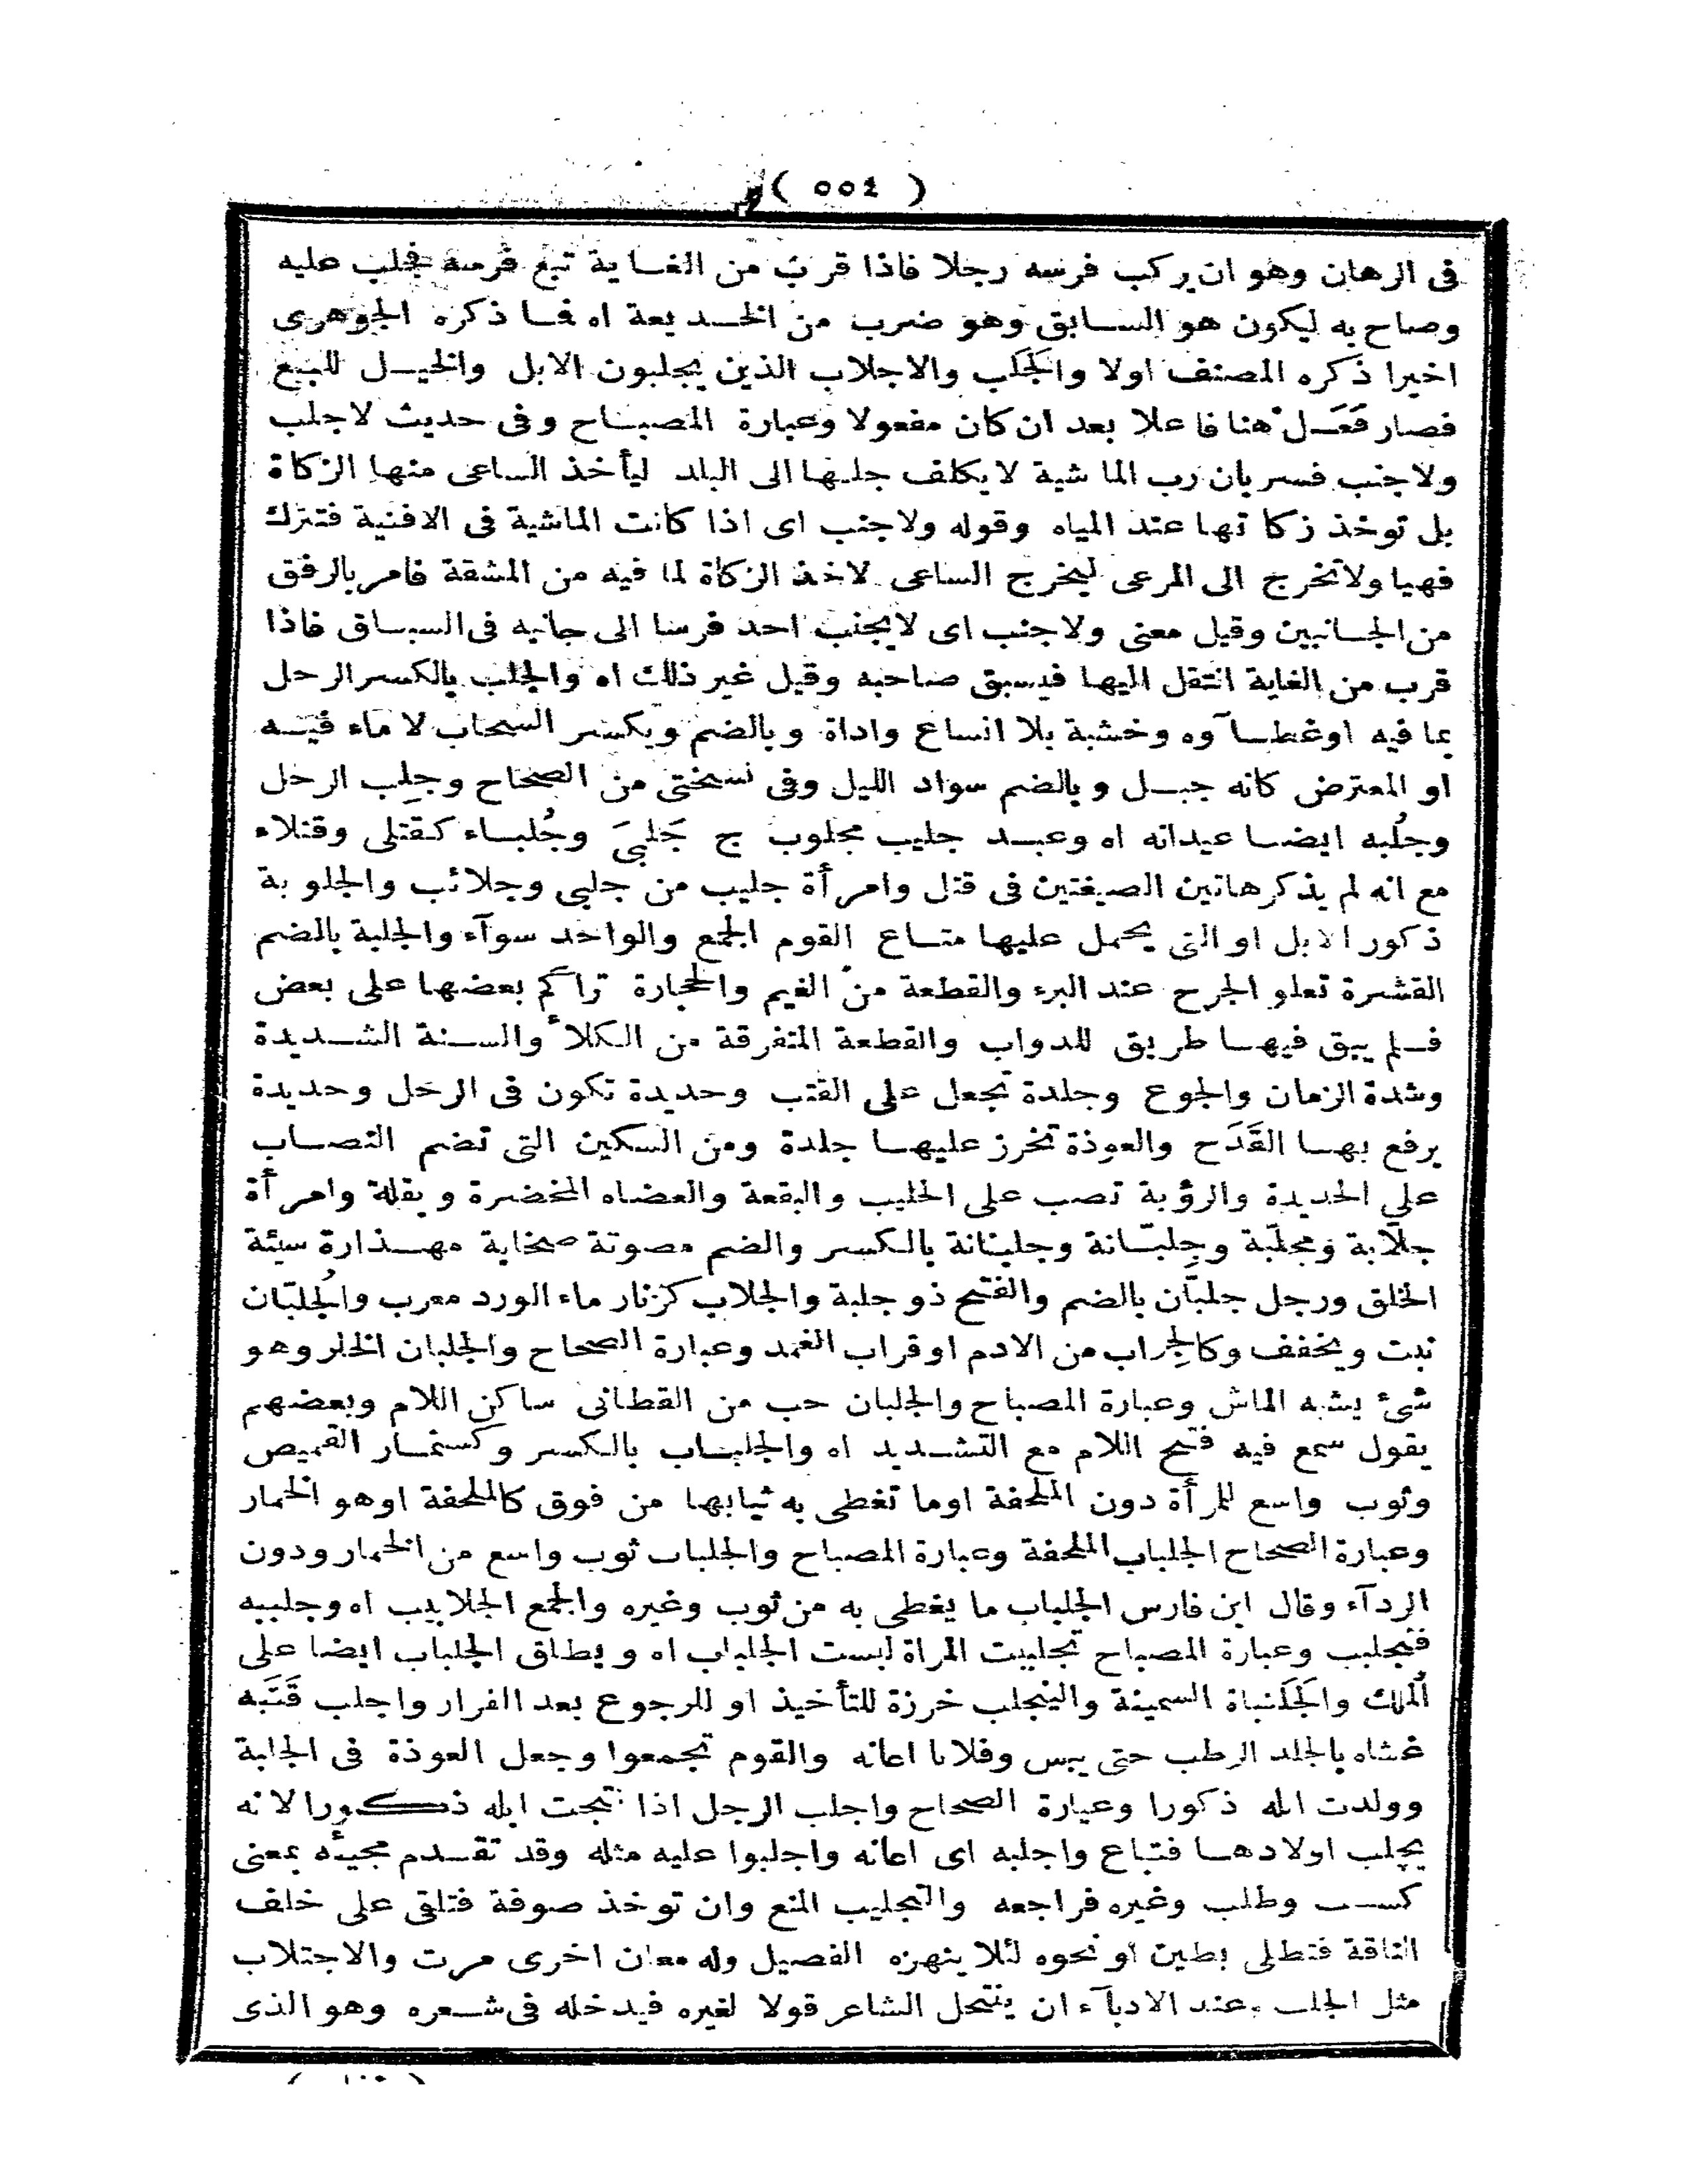 ( ٥٥٤ )
فى الرهان وهو ان يركب فرسه رجلا فاذا قرب من الغاية تبع فرسه فجلب عليه
وصاح به ليكون هو السابق وهو ضرب من الخديعة اه فما ذكره الجوهرى
اخيرا ذكره المصنف اولا والجَلَب والاجلاب الذين يجلبون الابل والخيل للبيع
فصار فَعَل هنا فاعلا بعد ان كان مفعولا وعبارة المصباح وفى حديث لاجلب
ولاجنب فسر بان رب الماشية لايكلف جلبها الى البلد ليأخذ الساعى منها الزكاة
بل توخذ زكاتها عند المياه وقوله ولاجنب اى اذا كانت الماشية فى الافنية فتترك
فهيا ولاتخرج الى المرعى ليخرج الساعى لاخذ الزكاة لما فيه من المشقة فامر بالرفق
من الجانبين وقيل معنى ولاجنب اى لايجنب احد فرسا الى جانبه فى السباق فاذا
قرب من الغاية انتقل اليها فيسبق صاحبه وقيل غير ذلك اه والجلب بالكسر الرحل
بما فيه اوغطآوه وخشبة بلا انساع واداة وبالضم ويكسر السحاب لا ماء فيه
او المعترض كانه جبل وبالضم سواد الليل وفى نسختى من الصحاح وجِلب الرحل
وجُلبه ايضا عيدانه اه وعبد جليب مجلوب ج جَلبىَ وجُلباء كقتلى وقتلاء
مع انه لم يذكر هاتين الصيغتين فى قتل وامرأة جليب من جلبى وجلائب والجلوبة
ذكور الابل او التى يحمل عليها متاع القوم الجمع والواحد سوآء والجلبة بالضم
القشرة تعلو الجرح عند البرء والقطعة من الغيم والحجارة تراكم بعضها على بعض
فلم يبق فيها طريق للدواب والقطعة المتفرقة من الكلأ والسنة الشديدة
وشدة الزمان والجوع وجلدة تجعل على القتب وحديدة تكون فى الرحل وحديدة
يرفع بها القَدَح والعوذة تخرز عليها جلدة ومن السكين التى تضم النصاب
على الحديدة والرؤبة تصب على الحليب والبقعة والعضاه المخضرة وبقلة وامرأة
جلاّبة ومجلّبة وجِلِبّانة وجلبنانة بالكسر والضم مصوتة صخابة مهذارة سيئة
الخلق ورجل جلبّان بالضم والفتح ذو جلبة والجلاب كزنار ماء الورد معرب والجُلبّان
نبت ويخفف وكالجِراب من الادم اوقراب الغمد وعبارة الصحاح والجلبان الخلر وهو
شئ يشبه الماش وعبارة المصباح والجلبان حب من القطانى ساكن اللام وبعضهم
يقول سمع فيه فتح اللام مع التشديد اه والجلباب بالكسر وكسنمار القميص
وثوب واسع للمرأة دون الملحفة اوما تغطى به ثيابها من فوق كالملحفة اوهو الخمار
وعبارة الصحاح الجلباب الملحفة وعبارة المصباح والجلباب ثوب واسع من الخمار ودون
الردآء وقال ابن فارس الجلباب ما يغطى به من ثوب وغيره والجمع الجلابيب اه وجلببه
فتجلبب وعبارة المصباح تجلببت المراة لبست الجلباب اه ويطلق الجلباب ايضا على
المُلك والجَلَنباة السمينة والينجلب خرزة للتأخيذ او للرجوع بعد الفرار واجلب قَتَبه
غشاه بالجلد الرطب حتى يبس وفلانا اعانه والقوم تجمعوا وجعل العوذة فى الجلبة
وولدت ابله ذكورا وعبارة الصحاح واجلب الرجل اذا نتجت ابله ذكورا لانه
يجلب اولادها فتباع واجلبه اى اعانه واجلبوا عليه مثله وقد تقدم مجيئه بمعنى
كسب وطلب وغيره فراجعه والتجليب المنع وان توخذ صوفة فتلقى على خلف
الناقة فتطلى بطين او نحوه لئلا ينهزه الفصيل وله معان اخرى مرت والاجتلاب
مثل الجلب وعند الادبآء ان ينتحل الشاعر قولا لغيره فيدخله فى شعره وهو الذى